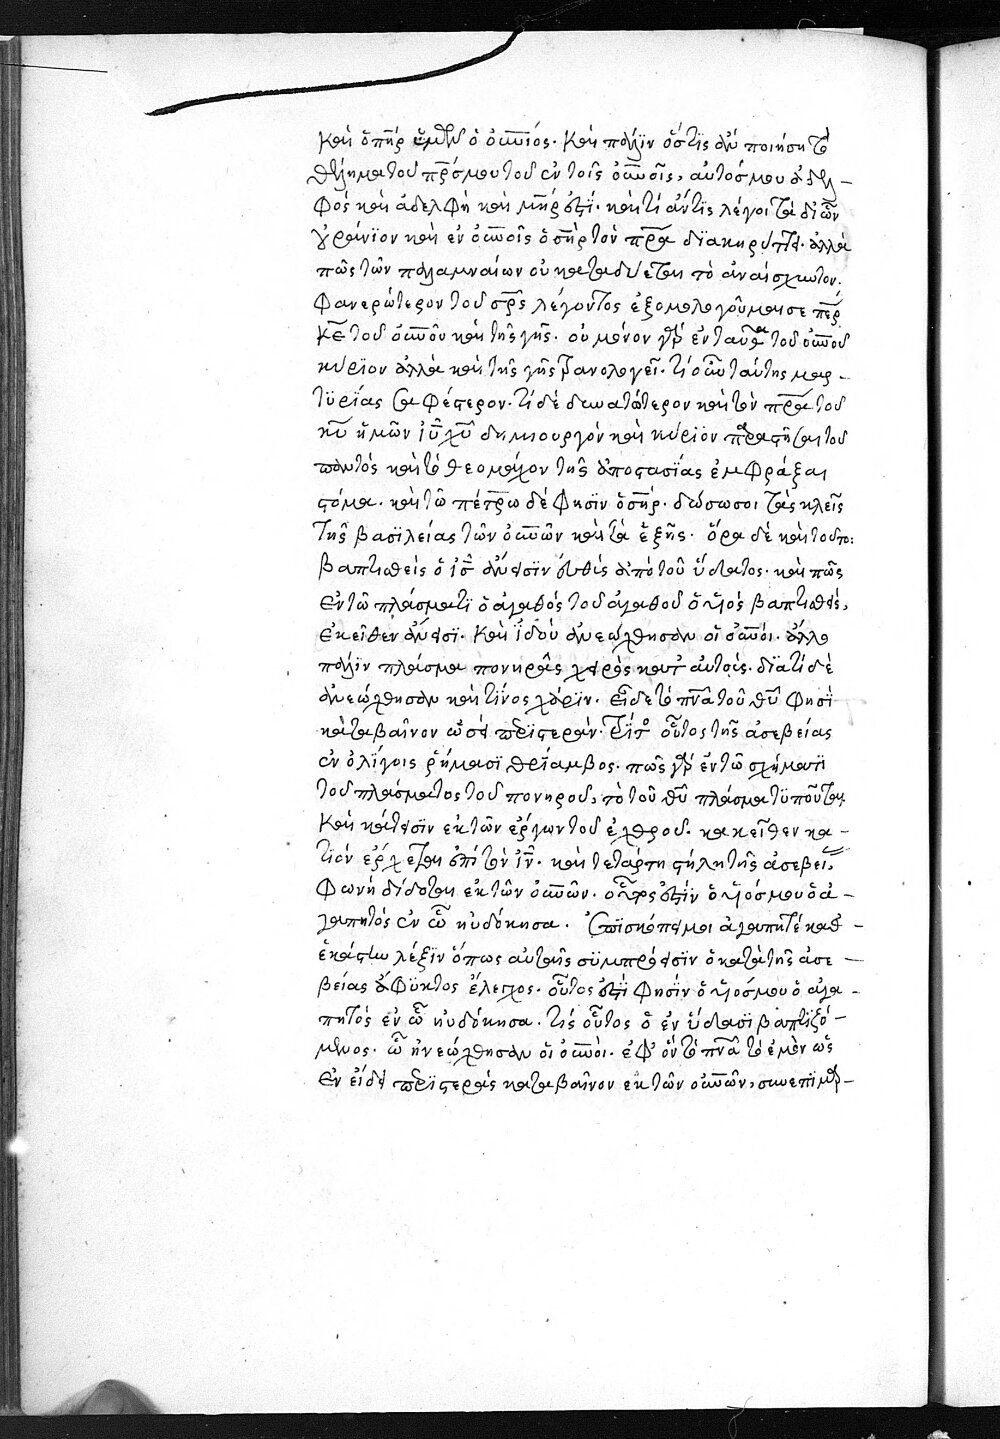 καὶ ὁ π̅η̅ρ ὑμῶν ὁ ο̅υ̅νιός. καὶ πάλιν ὅστις ἂν ποιήσῃ τὸ
θέλημα τοῦ π̅ρ̅ς μου τοῦ ἐν τοῖς ο̅υ̅νοῖς, αὐτός μου ἀδελ-
φὸς καὶ ἀδελφὴ καὶ μ̅η̅ρ ἐστί. καὶ τί ἄν τις λέγοι τὰ δι' ὧν
οὐράνιον καὶ ἐν ο̅υ̅νοῖς ὁ σ̅η̅ρ τὸν π̅ρ̅α διακηρύττει. ἀλλὰ
πῶς τῶν παλαμναίων οὐ καταδύεται τὸ ἀναίσχυντον.
φανερώτερον τοῦ σ̅ρ̅ς λέγοντος ἐξομολογοῦμαι σε π̅ε̅ρ
κ̅ε̅ τοῦ ο̅υ̅νοῦ καὶ τῆς γῆς. οὐ μόνον γὰρ ἐνταῦθα τοῦ ο̅υ̅νοῦ
κύριον ἀλλὰ καὶ τῆς γῆς ἀνομολογεῖ. τί οὖν ταύτης μαρ-
τυρίας σαφέστερον. τί δὲ δυνατώτερον καὶ τὸν π̅ρ̅α τοῦ
κ̅υ̅ ἡμῶν ἰ̅υ̅ χ̅υ̅ δημιουργὸν καὶ κύριον παραστῆσαι τοῦ
παντὸς καὶ τὸ θεομάχον τῆς ἀποστασίας ἐμφράξαι
στόμα. καὶ τῶ πέτρω δέ φησὶν ὁ σ̅η̅ρ. δώσω σοι τὰς κλεῖς
τῆς βασιλείας τῶν ο̅υ̅νῶν καὶ τὰ ἑξῆς. ὅρα δὲ καὶ τοῦτο:
βαπτισθεὶς ὁ ἰ̅ς̅ ἄνεισιν εὐθὺς ἀπὸ τοῦ ὕδατος. καὶ πῶς
ἐν τῶ πλάσματι ὁ ἀγαθὸς τοῦ ἀγαθοῦ ὁ υἱὸς βαπτισθείς,
ἐκεῖθεν ἄνεισι. καὶ ἰδοὺ ἀνεώχθησαν οἱ ο̅υ̅νοί. ἄλλο
πάλιν πλάσμα πονηρᾶς χειρὸς κατ' αὐτούς. διατί δὲ
ἀνεώχθησαν καὶ τίνος χάριν. εἶδε τὸ π̅ν̅α τοῦ θ̅υ̅ φησὶ
καταβαῖνον ὡσεὶ περιστεράν. τρίτος οὗτος τῆς ἀσεβείας
ἐν ὀλίγοις ῥήμασι θρίαμβος. πῶς γὰρ ἐν τῶ σχήματι
τοῦ πλάσματος τοῦ πονηροῦ, τὸ τοῦ θ̅υ̅ πλάσμα τυποῦται.
καὶ κάτεισιν ἐκ τῶν ἔργων τοῦ ἐχθροῦ. κἀκεῖθεν κα-
τιὸν ἔρχεται ἐπὶ τὸν ἰ̅ν̅. καὶ τετάρτη στήλη τῆς ἀσεβείας
φωνὴ δίδοται ἐκ τῶν ο̅υ̅νῶν. οὗτός ἐστιν ὁ υἱός μου ὁ ἀ-
γαπητὸς ἐν ὧ ηὐδόκησα. ἐπισκόπει μοι ἀγαπητὲ καθ'
ἑκάστην λέξιν ὅπως αὐταῖς συμπρόεισιν ὁ κατὰ τῆς ἀσε-
βείας ἄφυκτος ἔλεγχος. οὗτός ἐστι φησὶν ὁ υἱός μου ὁ ἀγα-
πητὸς ἐν ὧ ηὐδόκησα. τίς οὗτος ὁ ἐν ὕδασι βαπτιζό-
μενος. ὧ ἠνεώχθησαν οἱ ο̅υ̅νοί. ἐφ' ὃν τὸ π̅ν̅α τὸ ἐμὸν ὡς
ἐν εἴδει περιστερᾶς καταβαῖνον ἐκ τῶν ο̅υ̅νῶν, συνεπιμαρ-